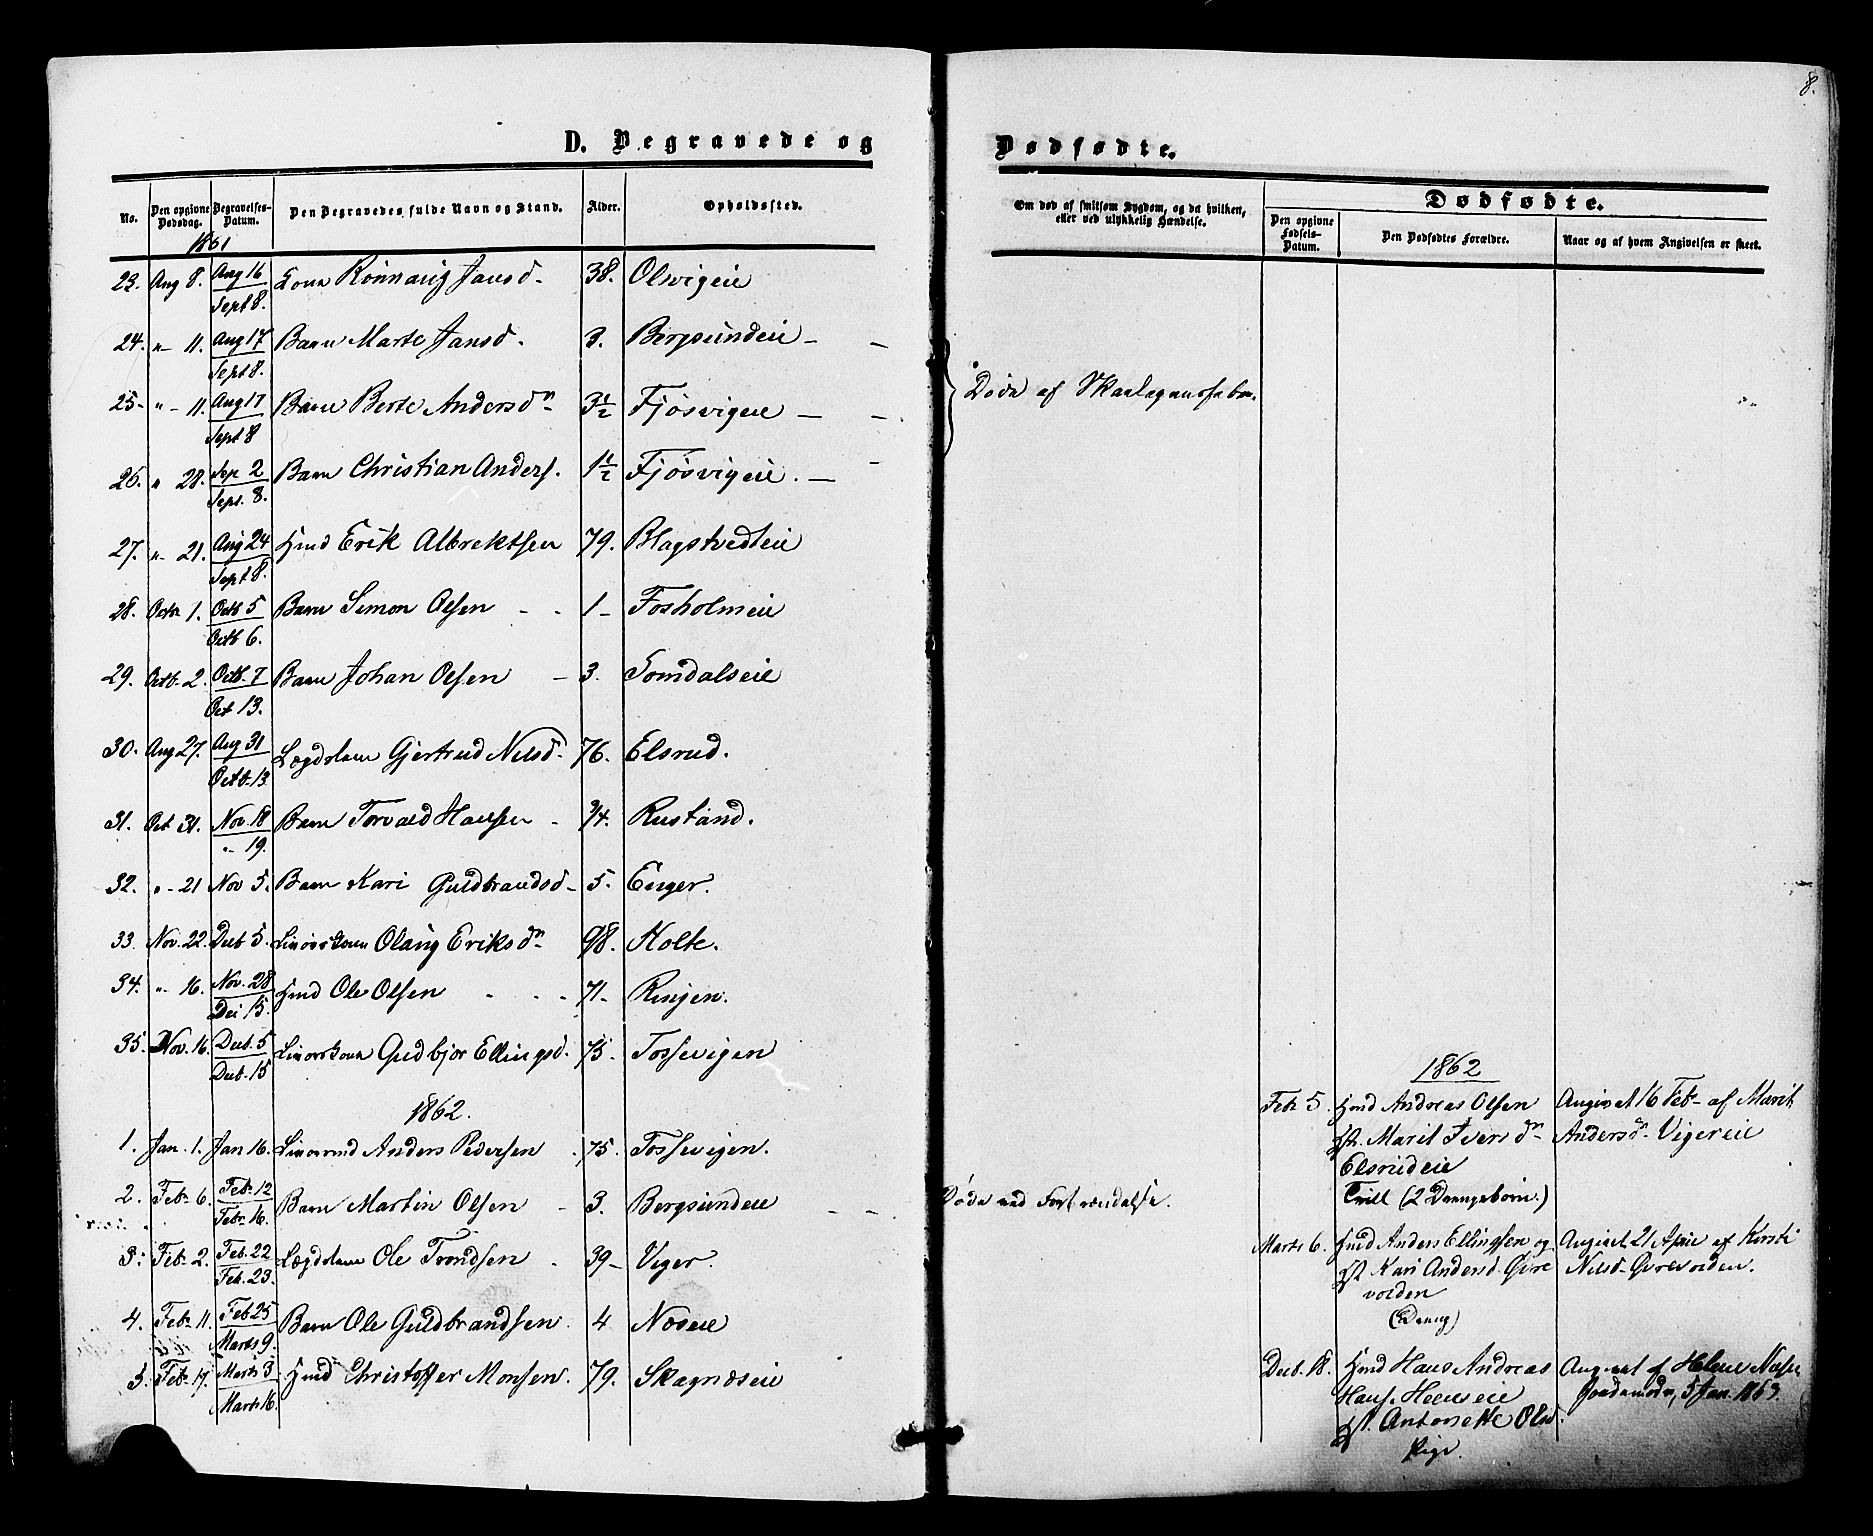 8.
D. Begravede og
Dødfødte.
No.
Den opgivne Dødsdag.
Begravelses-Datum.
Den Begravedes fulde Navn og Stand.
Alder.
Opholdssted.
Om død af smitsom Sygdom, og da hvilken, eller ved ulykkelig Hændelse.
Dødfødte.
Den opgivne Fødsels-Datum.
Den Dødfødtes Forældre.
Naar og af hvem Angivelsen er skeet.
1861
23. Aug 8. Aug 16 Sept 8. Kone Rönnaug Jansd. 38. Olsvigeie
24. " 11. Aug 17 Sept 8. Barn Marte Jansd. 3. Bergsundeie
25. " 11. Aug 17 Sept 8 Barn Berte Andersdn 3½ Fjøsvigeie
Døde af Skarlagensfeber.
26. " 28. Sep 2 Sept. 8. Barn Christian Anders. 1½ Fjøsvigeie.
27. " 21. Aug 24 Sept 8. Hmd Erik Albrektsen 79. Blagstvedteie
28. Octr 1. Octb 5 Octb 6. Barn Simon Olsen 1 Fosholmeie
29. Octb. 2. Octb. 7 Oct 13. Barn Johan Olsen 3. Somdalseie
30. Aug 27. Aug 31 Octb. 13 Lægdslem Gjertrud Nilsd. 76. Elsrud.
31. Oct 31. Nov. 18 " 19. Barn Torvald Hansen 3/4. Rustand.
32. " 21 Nov 5. Barn Kari Guldbrandsd 5. Enger.
33. Nov. 22. Decb 5. Livørskone Olaug Eriksdn 98. Holte.
34. " 16. Nov. 28 Dec 15. Hmd Ole Olsen 71 Ringen.
35. Nov. 16. Decb. 5 Decb. 15 Livørskone Gudbjør Ellingsd. 75. Tossevigen
1862.
1. Jan. 1. Jan 16. Livørmd Anders Pedersen 75. Tossevigen.
2. Feb. 6. Feb. 12 Febr. 16. Barn Martin Olsen 3. Bergsundeie
Døde ved Forbrændelse.
3. Feb. 2. Feb. 22 Feb. 23. Lægdslem Ole Trondsen 39 Viger.
4. Feb. 11. Feb 25 Marts 9. Barn Ole Guldbrandsen 4 Næseie
5. Feb. 17. Marts 3 Marts 16. Hmd Christoffer Monsen. 79. Skagnæseie
1862
Feb. 5. Hmd Andreas Olsen
Marit Iversdn
Elsrudeie
Tvill (2 Drengebørn.)
Angivet 16 Feb. af Marit
Andersdn Vigereie
Marts 6. Hmd Anders Ellingsen og
Kari Andersd Øvre
vorden
(Dreng)
Angivet 21 April af Kirsti
Nilsd. Ørevorden.
Decb. 18. Hmd Hans Andreas
Hans. Heenseie
Antonette Olsd.
Pige.
Angivet af Helene Næss
Jordemoder, 5 Jan. 1863.